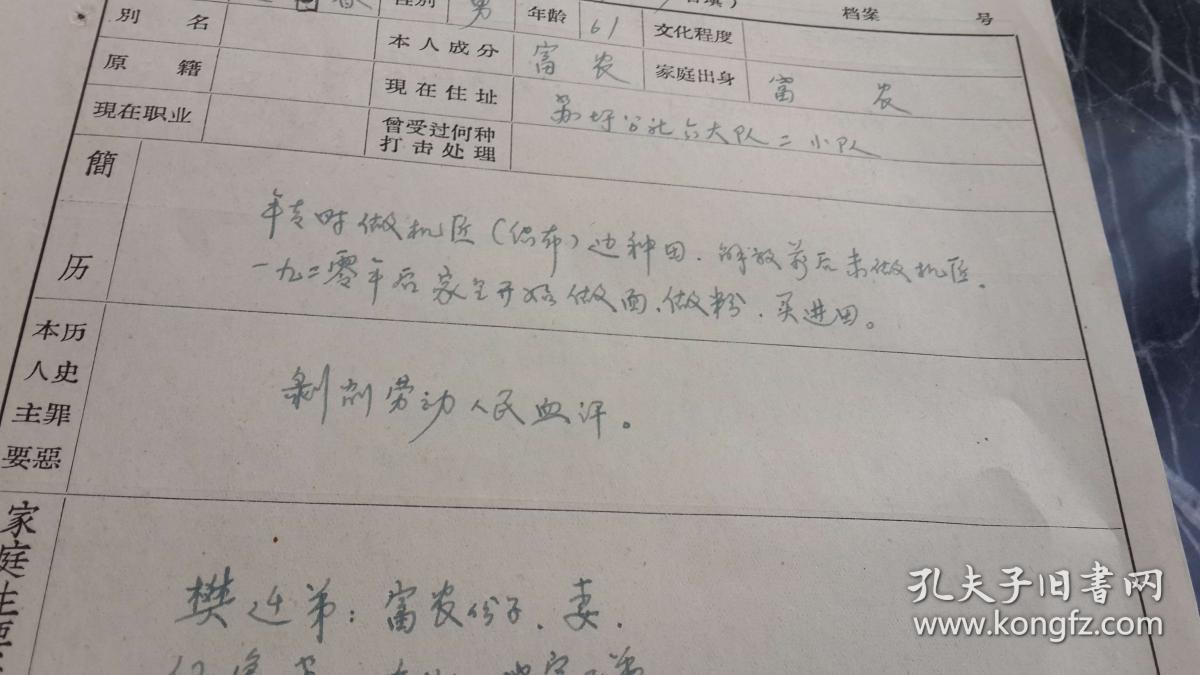 性别 男 年龄 61 文化程度 档案 号
别名
本人成分 富农 家庭出身 富农
原籍 現在住址 苏圩公社六大队二小队
現在职业 曾受过何种打击处理
簡历
年青时做机匠（织布）边种田．解放前后未做机匠．
一九二零年后家里开始做面、做粉．买进田。
本人历史主要罪惡
剥削劳动人民血汗。
家庭主要
樊 弟：富农份子．妻．
孔夫子旧书网
www.kongfz.com